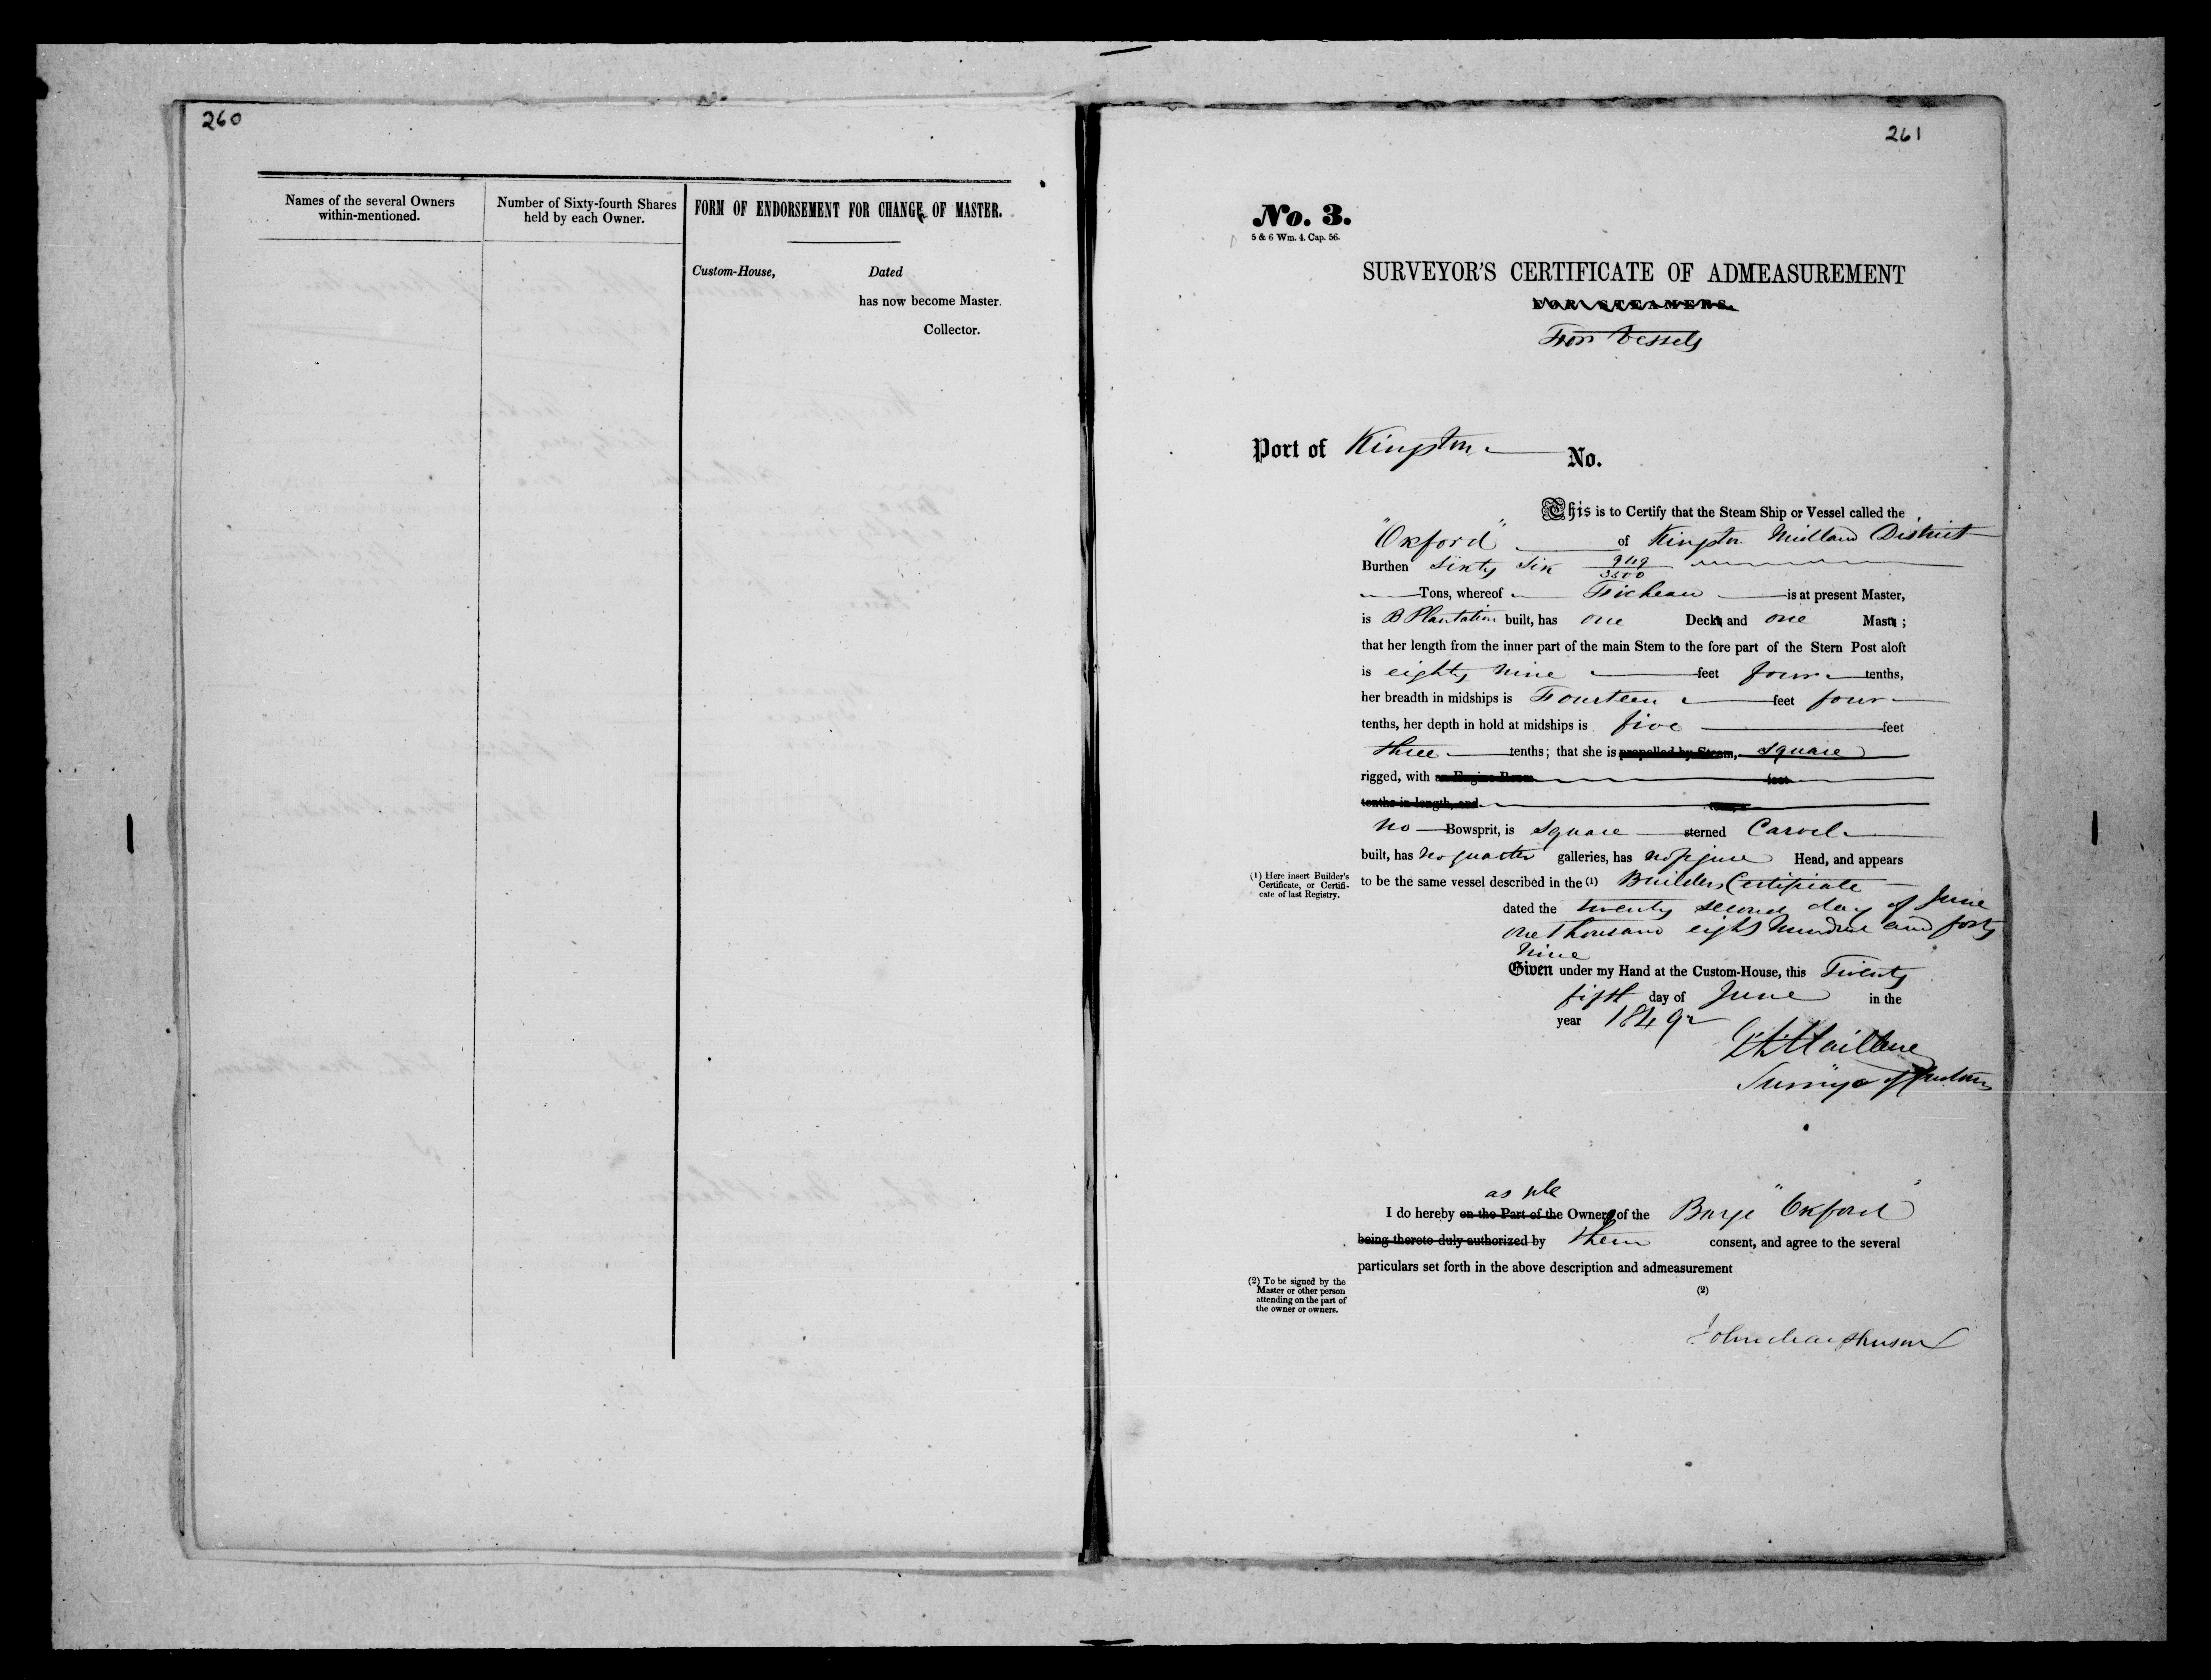 260
Names of the several Owners within-mentioned.
Number of Sixty-fourth Shares held by each Owner.
FORM OF ENDORSEMENT FOR CHANGE OF MASTER.
Custom-House, Dated
has now become Master.
Collector.
261
No. 3.
5 & 6 Wm. 4. Cap. 56.
SURVEYOR'S CERTIFICATE OF ADMEASUREMENT
FOR STEAMERS.
For Vessels
Port of Kingston No.
This is to Certify that the Steam Ship or Vessel called the
"Oxford" of Kingston Midland District
Burthen Sixty Six 949/3500
Tons, whereof is at present Master,
is B Plantation built, has one Decks and one Masts ;
that her length from the inner part of the main Stem to the fore part of the Stern Post aloft
is eighty nine feet four tenths,
her breadth in midships is Fourteen feet four
tenths, her depth in hold at midships is five feet
three tenths; that she is propelled by Steam, square
rigged, with an Engine Room feet
tenths in length, and tons,
no Bowsprit, is square sterned Carvel
built, has no quarter galleries, has no figure Head, and appears
(1) Here insert Builder's Certificate, or Certificate of last Registry.
to be the same vessel described in the (1) Builders Certificate
dated the twenty second day of June
one thousand eight hundred and forty
nine
Given under my Hand at the Custom-House, this Twenty
fifth day of June in the
year 1849
of Customs
as sole
I do hereby on the Part of the Owners of the Barge "Oxford"
being thereto duly authorized by them consent, and agree to the several
particulars set forth in the above description and admeasurement
(2) To be signed by the Master or other person attending on the part of the owner or owners.
(2)